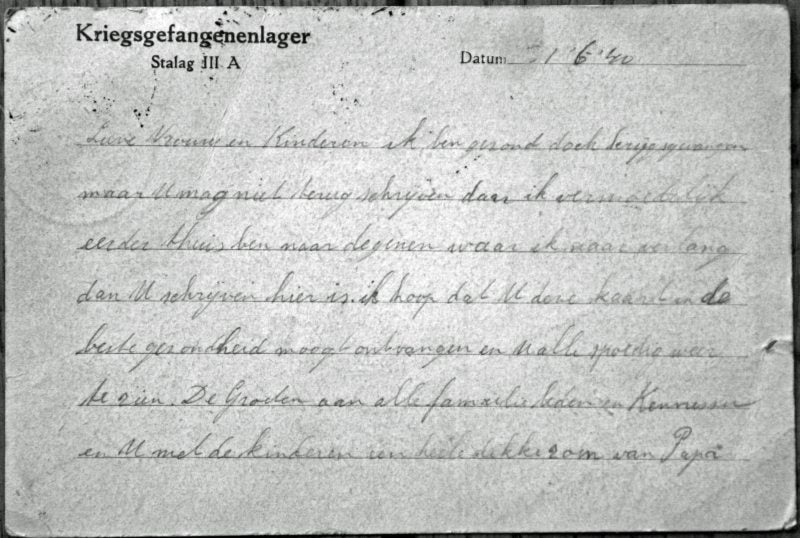 Kriegsgefangenenlager
Stalag III A
Datum 1 6 40
Lieve Vrouw en Kinderen ik ben gezond doch
maar U mag niet terug schrijven daar ik vermoedelijk
eerder thuis ben naar degenen waar ik naar verlang
dan U schrijven hier is. ik hoop dat U deze kaart in de
beste gezondheid moogt ontvangen en U alle spoedig weer
te zien. De Groeten aan alle familie leden en Kennissen
en U met de kinderen een dikke zoen van Papa